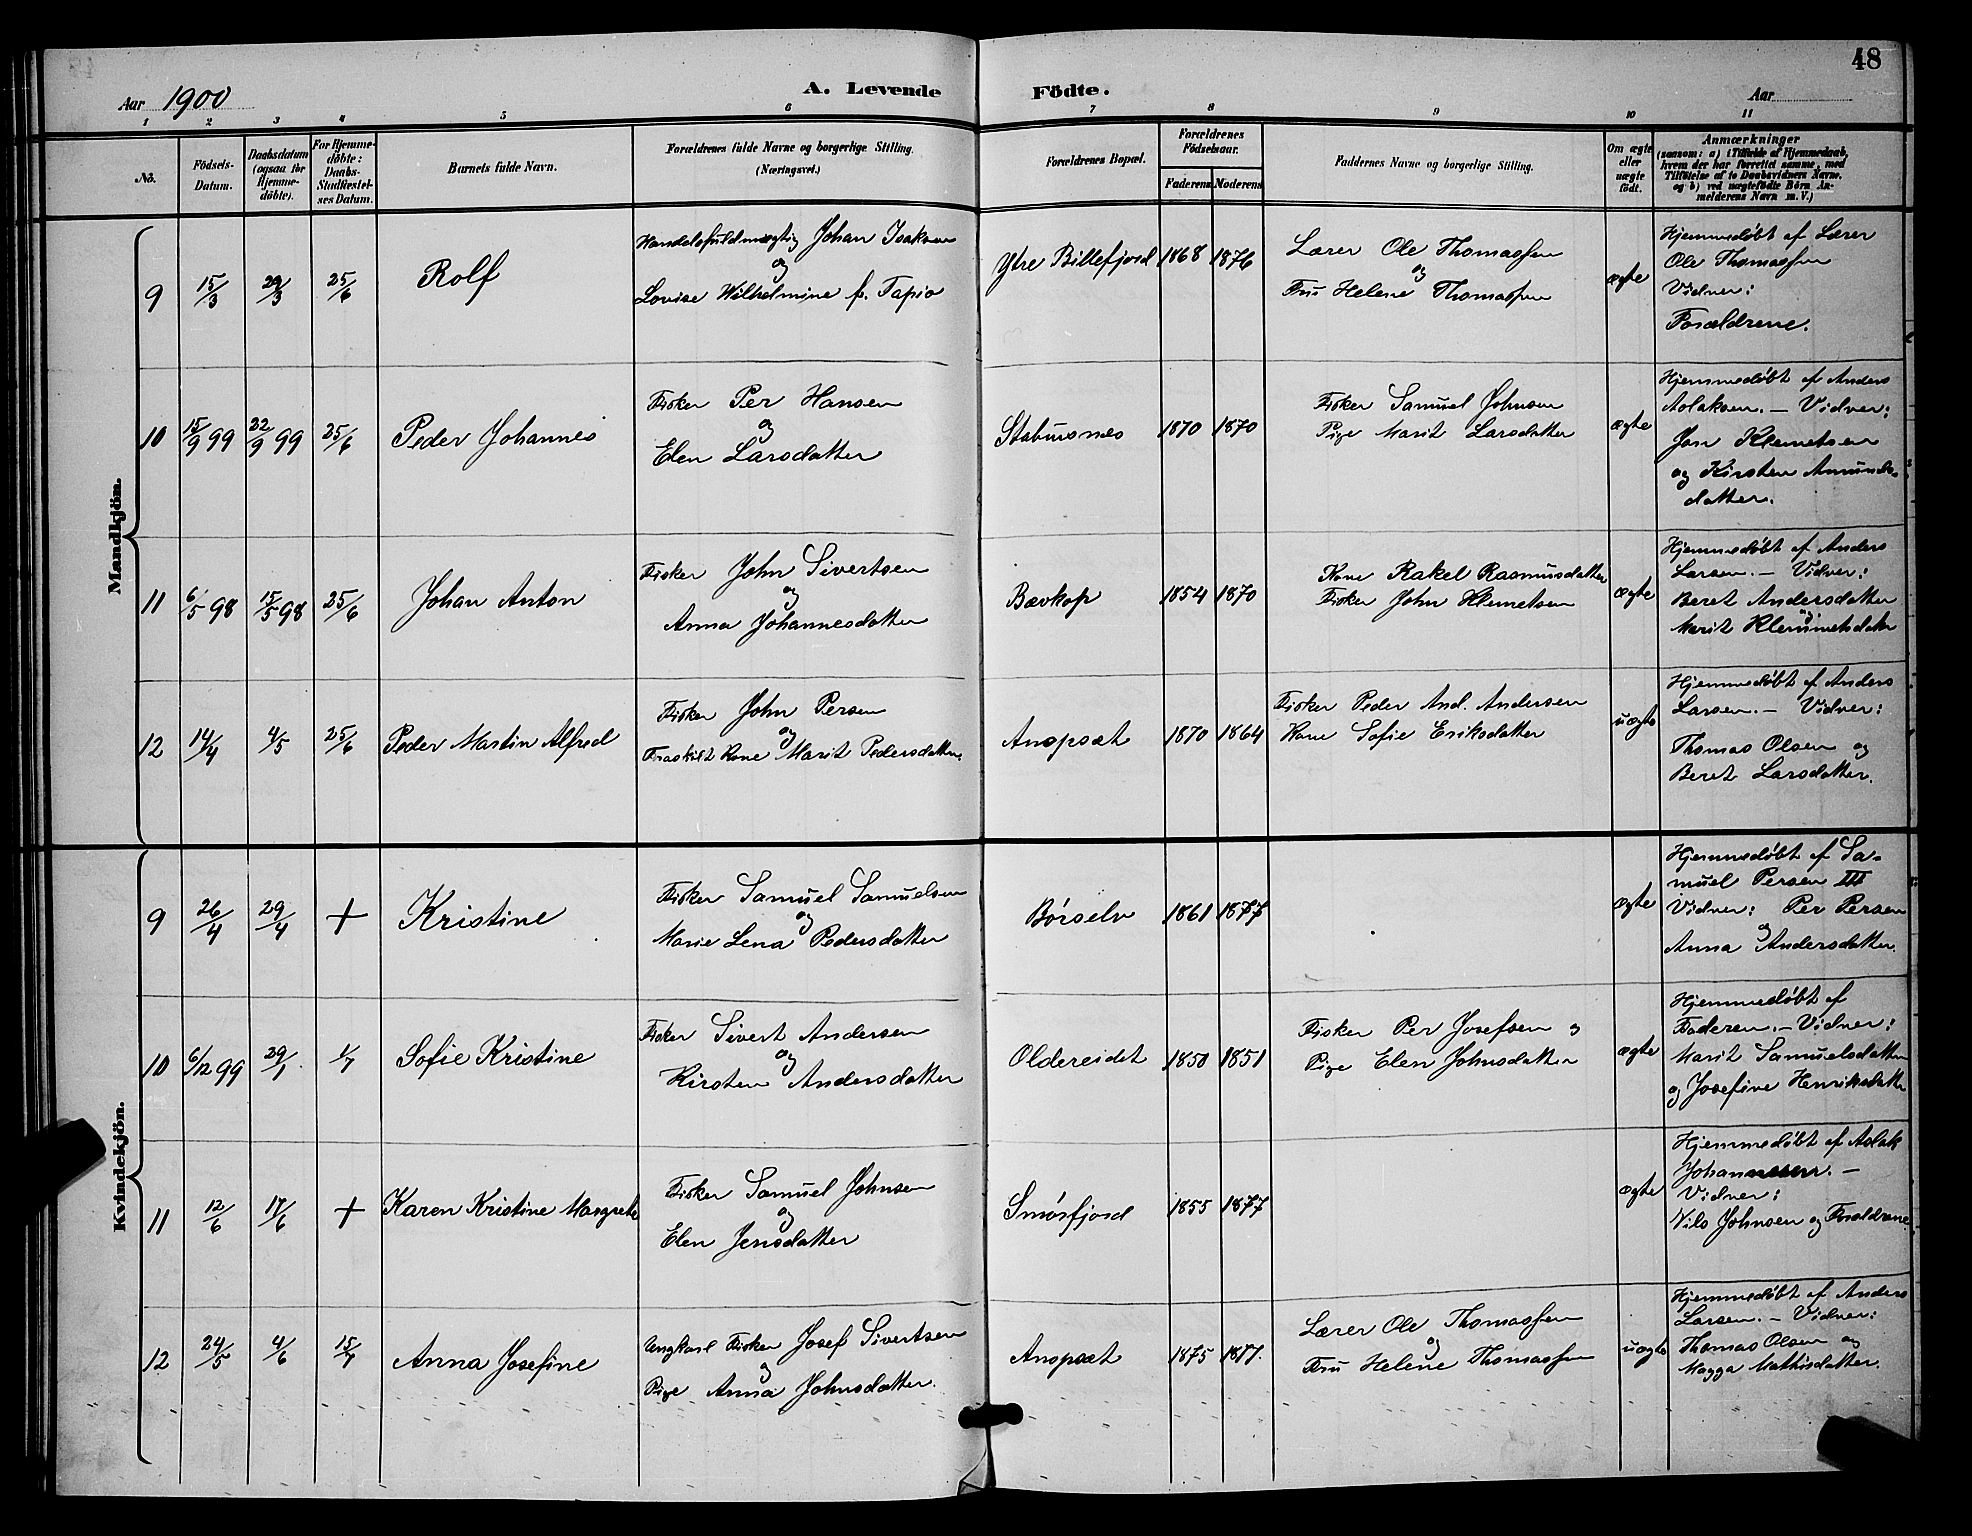 48
Aar 1900
A. Levende
Födte.
Aar
1 2 3 4 5 6 7 8 9 10 11
No.
Födsels-
Datum.
Daabsdatum
(ogsaa for
Hjemme-
döbte).
For Hjemme-
döbte:
Daabs-
Stadfæstel-
ses Datum.
Barnets fulde Navn.
Forældrenes fulde Navne og borgerlige Stilling.
(Næringsvei.)
Forældrenes Bopæl.
Forældrenes
Födselsaar.
Faderens Moderens
Faddernes Navne og borgerlige Stilling.
Om ægte
eller
uægte
födt.
Anmærkninger
(saasom: a) i Tilfælde af Hjemmedaab,
hvem der har forrettet samme, med
Tilföielse af to Daabsvidners Navne.
og b) ved uægtefödte Börn An-
melderens Navn m. V.)
Mandkjön.
9 15/3 29/3 25/6 Rolf
Handelsfuldmægtig Johan Isaksen
og
Lovise Wilhelmine f. Tapio
Ytre Billefjord 1868 1876
Lærer Ole Thomassen
og
Fru Helene Thomassen
ægte
Hjemmedøbt af Lærer
Ole Thomassen
Vidner:
Forældrene.
10 15/9 99 22/9 99 25/6 Peder Johannes
Fisker Per Hansen
og
Elen Larsdatter
Stabursnes 1870 1870
Fisker Samuel Johnsen
Pige Marit Larsdatter
ægte
Hjemmedøbt af Anders
Aslaksen. – Vidner:
Jon Klemetsen
og Kirsten Amunds-
datter.
11 6/5 98 15/5 98 25/6 Johan Anton
Fisker John Sivertsen
og
Anna Johannesdatter
Bævkop 1854 1870
Kone Rakel Rasmusdatter
Fisker John Klemetsen
ægte
Hjemmedøbt af Anders
Larsen. – Vidner:
Beret Andersdatter
og
Marit Klemmetsdatter
12 14/4 4/5 25/6 Peder Martin Alfred
Fisker John Persen
og
Fraskilt Kone Marit Pedersdatter.
Anopsæt 1870 1864
Fisker Peder And. Andersen
Kone Sofie Eriksdatter
uægte
Hjemmedøbt af Anders
Larsen. – Vidner:
Thomas Olsen og
Beret Larsdatter.
Kvindekjön.
9 26/4 29/4 + Kristine
Fisker Samuel Samuelsen
og
Marie Lena Pedersdatter
Børselv 1861 1877
ægte
Hjemmedøbt af Sa-
muel Persen III
Vidner: Per Persen
og
Anna Andersdatter.
10 6/12 99 29/1 1/7 Sofie Kristine
Fisker Sivert Andersen
og
Kirsten Andersdatter
Oldereidet 1850 1851
Fisker Per Josefsen og
Pige Elen Johnsdatter
ægte
Hjemmedøbt af
Faderen. – Vidner:
Marit Samuelsdatter
og Josefine Henriksdatter
11 12/6 17/6 + Karen Kristine Margrete
Fisker Samuel Johnsen
og
Elen Jensdatter
Smørfjord 1855 1877
ægte
Hjemmedøbt af Aslak
Johannesen. –
Vidner:
Nils Johnsen og Forældrene
12 24/5 4/6 15/7 Anna Josefine
Ungkarl Fisker Josef Sivertsen
og
Pige Anna Johnsdatter.
Anopsæt 1875 1877.
Lærer Ole Thomassen
og
Fru Helene Thomassen
uægte
Hjemmedøbt af Anders
Larsen. – Vidner:
Thomas Olsen og
Magga Mathisdatter.